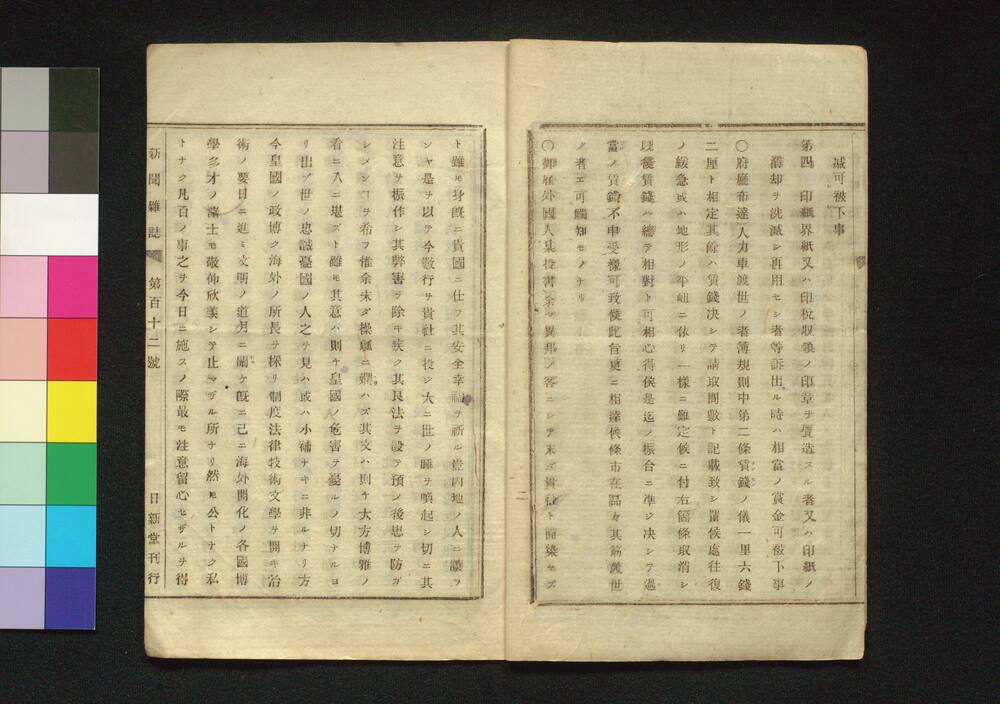 減可被下事
第四 印紙界紙又ハ印税収領ノ印章ヲ贋造スル者又ハ印紙ノ
消却ヲ洗滅シ再用セシ者等訴出ル時ハ相當ノ賞金可被下事
〇府廳布達人力車渡世ノ者薄規則中第二條賃錢ノ儀一里六錢
二厘ト相定其餘ハ賃錢决シテ請取間敷ト記載致シ置候處往復
ノ緩急或ハ地形ノ平岨ニ依リ一樣ニ難定候ニ付右箇條取消シ
以後賃錢ハ總テ相對ト可相心得候是迄ノ振合ニ準シ决シテ過
當ノ賃錢不申受樣可致候此旨更ニ相達候條市在區々其筋渡世
ノ者エ可觸知モノナリ
〇御雇外國人某投書余ヤ異邦ノ客ニシテ未ダ貴社ト面染セズ
ト雖モ身旣ニ貴國ニ仕フ其安全幸福ヲ祈ル豈内地ノ人ニ讓ラ
ンヤ是ヲ以テ今數行ヲ貴社ニ投シ大ニ世ノ睡ヲ喚起シ切ニ其
注意ヲ振作シ其弊害ヲ除キ疾ク其良法ヲ設テ預メ後患ヲ防ガ
シメンヿヲ希フ惟余未ダ操觚ニ嫻ハズ其文ハ則チ大方博雅ノ
看ニ入ニ堪ズト雖モ其意ハ則チ皇國ノ危害ヲ憂ルノ切ナルヨ
リ出ヅ世ノ忠誠憂國ノ人之ヲ見ハ或ハ小補ナキニ非ルナリ方
今皇國ノ政博ク海外ノ所長ヲ採リ制度法律技術文學ヲ開キ治
術ノ要日ニ進ミ文明ノ道月ニ闢ケ旣ニ己ニ海外開化ノ各國博
學多才ノ藻士モ敬仰欣羨シテ止マザル所ナリ然𪜈公トナク私
トナク凡百ノ事之ヲ今日ニ施スノ際最モ注意留心セザルヲ得
新聞雜誌 第百十二號 日新堂刊行